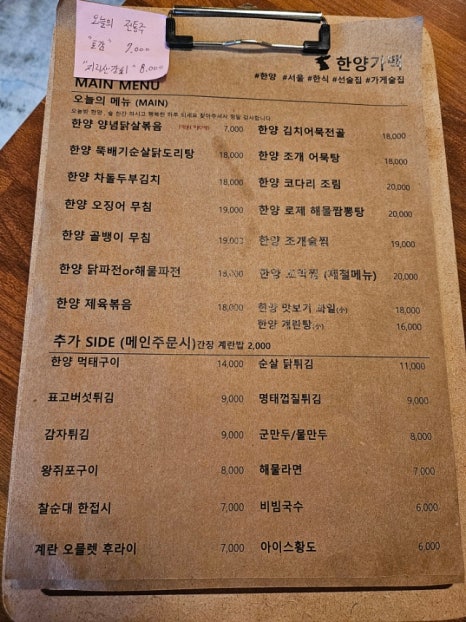 오늘의 전통주
7,000
8,000
한양가백
#한양 #서울 #한식 #선술집 #가게술집
MAIN MENU
오늘의 메뉴 (MAIN)
한양 양념닭살볶음 7,000
한양 김치어묵전골 18,000
한양 뚝배기순살닭도리탕 18,000
한양 조개 어묵탕 18,000
한양 차돌두부김치 18,000
한양 코다리 조림 20,000
한양 오징어 무침 19,000
한양 로제 해물짬뽕탕 20,000
한양 골뱅이 무침 19,000
한양 조개술찜 19,000
한양 닭파전or해물파전 18,000
한양 (제철메뉴) 20,000
한양 제육볶음 18,000
한양 맛보기 과일(소) 18,000
한양 계란탕(소) 16,000
추가 SIDE (메인주문시)간장 계란밥 2,000
한양 먹태구이 14,000
순살 닭튀김 11,000
표고버섯튀김 9,000
명태껍질튀김 9,000
감자튀김 9,000
군만두/물만두 8,000
왕쥐포구이 8,000
해물라면 7,000
찰순대 한접시 7,000
비빔국수 6,000
계란 오믈렛 후라이 7,000
아이스황도 6,000